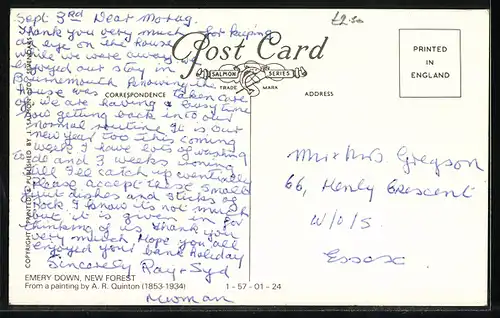 Sept 3rd Dear Morag.
Thank you very much for keeping
an eye on the house
while we were away we
enjoyed our stay in
Bournemouth knowing the
house was taken care
of we are having a busy time
now getting back into our
normal routine. It is our
new year too this coming
week I have lots of washing
to do and 3 weeks ironing
still I'll catch up eventually
Please accept these small
dishes and sticks of
rock I know its not much
but it is given in for
thinking of us thank you
very much Hope you all
enjoyed your bank Holiday
Sincerely Ray + Syd
Newman
£2.50
Post Card
SALMON SERIES
TRADE MARK
CORRESPONDENCE
ADDRESS
PRINTED
IN
ENGLAND
Mr & Mrs Gregson
66, Henly Crescent
W/O/S
Essex
EMERY DOWN, NEW FOREST
From a painting by A. R. Quinton (1853-1934)
1 - 57 - 01 - 24